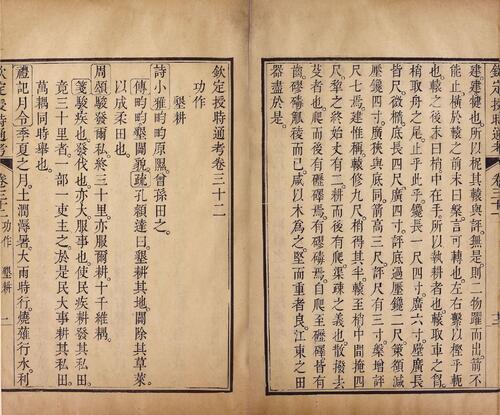 欽定授時通考
建建犍也。所以柅其轅與評。無是則二物躍而出箭不
能止橫於轅之前末曰槃。言可轉也。左右繫以樫乎軛
也。轅之後末曰梢。中在手。所以執耕者也。轅取車之胷。
梢取舟之尾。止乎此乎。鑱長一尺四寸。廣六寸。壁廣長
皆尺。微橢。底長四尺。廣四寸。評底過壓鑱二尺。策額減
壓鑱四寸。廣狹與底同。箭高三尺。評尺有三寸。槃增評
尺七焉。建惟稱轅修九尺。梢得其半。轅至梢中間掩四
尺。犁之終始丈有二。耕而後有爬。渠疎之義也。散撥去
芟者也。爬而後有礰礋焉。有磟碡焉。自爬至礰礋皆有
齒。磟碡觚稜而已。咸以木為之。堅而重者良。江東之田
器盡於是。
欽定授時通考卷三十二
功作
墾耕
詩小雅畇畇原隰。曾孫田之。
傳畇畇墾闢貌。疏孔穎達曰。墾耕其地。闢除其草萊。
以成柔田也。
周頌駿發爾私。終三十里。亦服爾耕。十千維耦。
箋駿疾也。發伐也。亦大。服事也。使民疾耕發其私田。
竟三十里者。一部一吏主之。於是民大事耕其私田。
萬耦同時舉也。
禮記月令季夏之月。土潤溽暑。大雨時行。燒薙行水。利
欽定授時通考 卷三十二 功作 墾耕 一